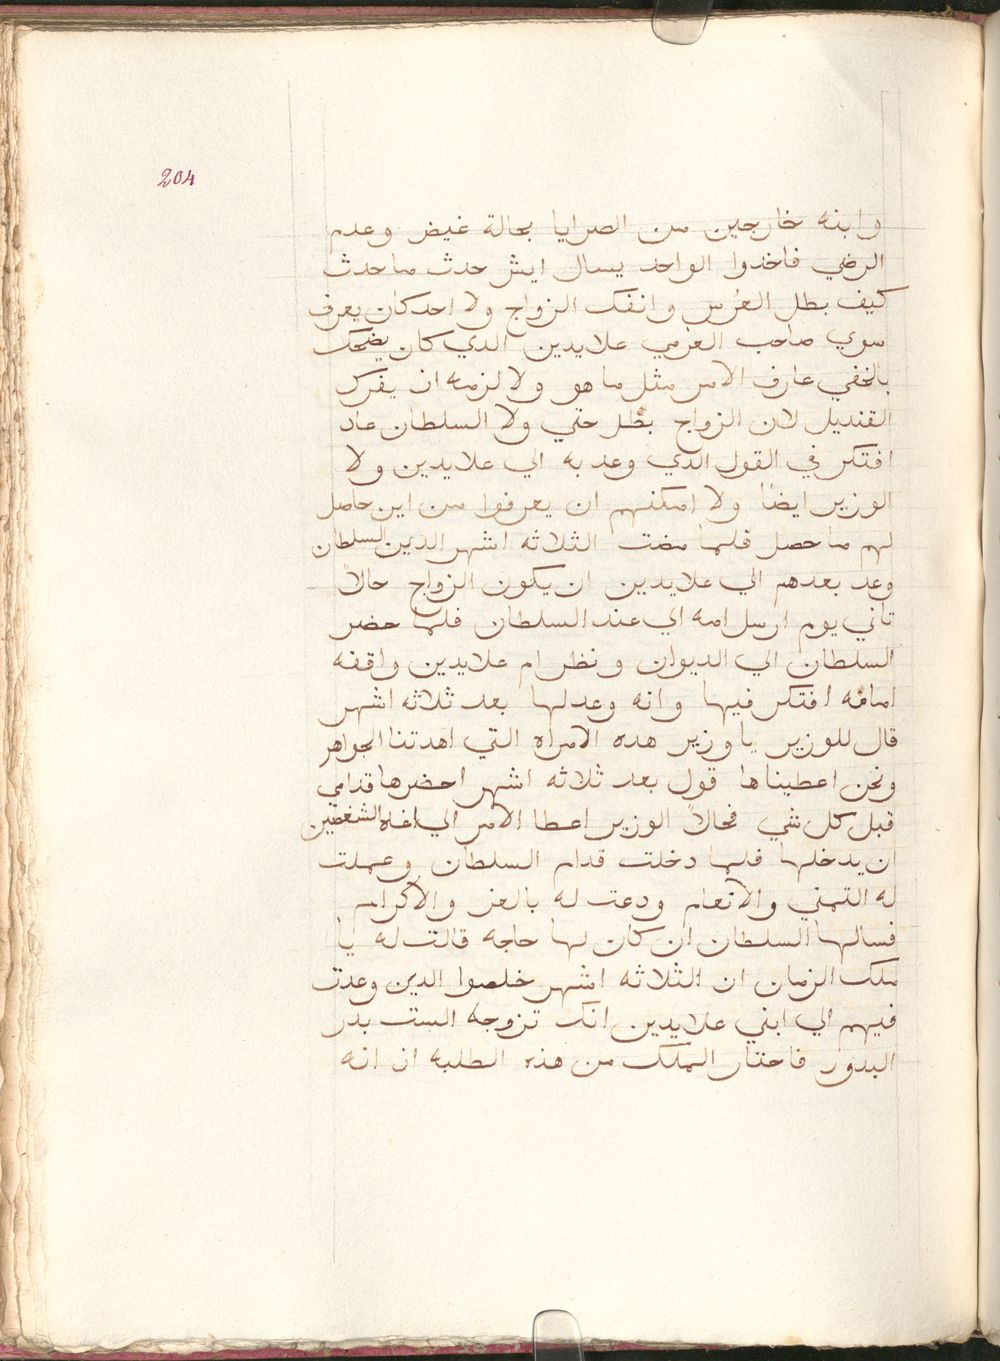 204
وابنه خارجين من الصرايا بحالة غيض وعدم
الرضي فاخدوا الواحد يسال ايش حدث ما حدث
كيف بطل العُرس وانفك الزواج ولا احد كان يعرف
سوي صاحب العزمي علايدين الدي كان يضحك
بالخفي عارف الامر مثل ما هو ولا لزمه ان يفرك
القنديل لان الزواج بطل حتي ولا السلطان عاد
افتكر في القول الدي وعد به الي علايدين ولا
الوزير ايضًا ولا امكنهم ان يعرفوا من اين حاصل
لهم ما حصل فلما مضت الثلاثه اشهر الدين السلطان
وعد بعدهم الي علايدين ان يكون الزواج حالاً
تاني يوم ارسل امه الي عند السلطان فلما حضر
السلطان الي الديوان ونظر ام علايدين واقفه
امامه افتكر فيها وانه وعدلها بعد ثلاثه اشهر
قال للوزير يا وزير هده الامراه التي اهدتنا الجواهر
ونحن اعطيناها قول بعد ثلاثه اشهر احضرها قدامي
قبل كل شي فحالاً الوزير اعطا الامر الي اغاه
ان يدخلها فلما دخلت قدام السلطان وعملت
له التمني والانعام ودعت له بالعز والاكرام
فسالها السلطان ان كان لها حاجه قالت له يا
ملك الزمان ان الثلاثه اشهر خلصوا الدين وعدت
فيهم الي ابني علايدين انك تزوجه الست بدر
البدور فاحتار الملك من هذه الطلبه ان انه